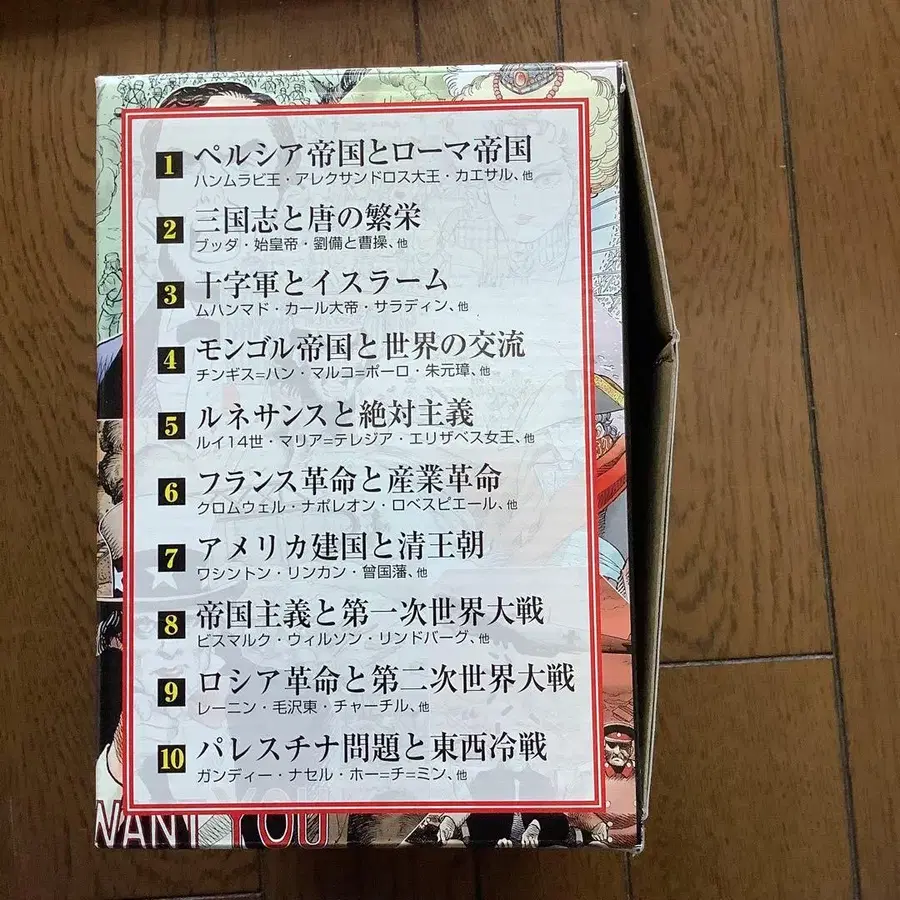 1 ペルシア帝国とローマ帝国
ハンムラビ王・アレクサンドロス大王・カエサル、他
2 三国志と唐の繁栄
ブッダ・始皇帝・劉備と曹操、他
3 十字軍とイスラーム
ムハンマド・カール大帝・サラディン、他
4 モンゴル帝国と世界の交流
チンギス=ハン・マルコ=ポーロ・朱元璋、他
5 ルネサンスと絶対主義
ルイ14世・マリア=テレジア・エリザベス女王、他
6 フランス革命と産業革命
クロムウェル・ナポレオン・ロベスピエール、他
7 アメリカ建国と清王朝
ワシントン・リンカン・曾国藩、他
8 帝国主義と第一次世界大戦
ビスマルク・ウィルソン・リンドバーグ、他
9 ロシア革命と第二次世界大戦
レーニン・毛沢東・チャーチル、他
10 パレスチナ問題と東西冷戦
ガンディー・ナセル・ホー=チ=ミン、他
WANT YOU